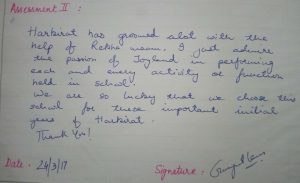 Assessment II :
Harkirat has groomed alot with the
help of Rekha maam. I just admire
the passion of Joyland in performing
each and every activity or function
held in school.
We are so lucky that we chose this
school for these important initial
years of Harkirat.
Thank You!
Date : 24/3/17
Signature :